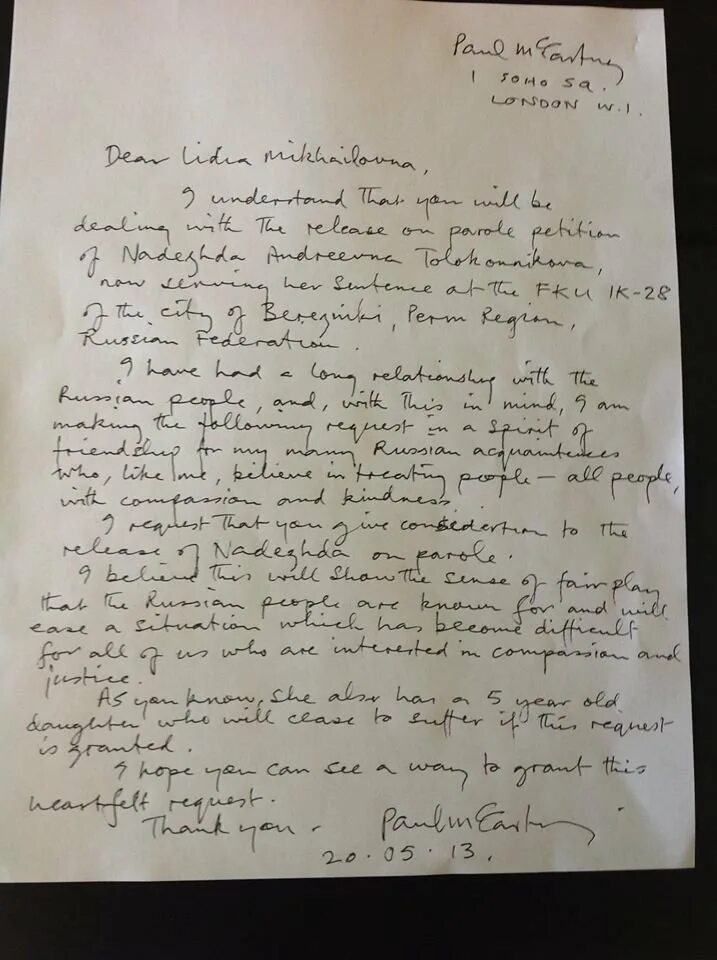 Paul McCartney
1 SOHO SQ.
LONDON W.1.
Dear Lidia Mikhailovna,
I understand that you will be
dealing with the release on parole petition
of Nadeghda Andreevna Tolokonnikova,
now serving her sentence at the FKU IK-28
of the city of Berezniki, Perm Region,
Russian Federation.
I have had a long relationship with the
Russian people, and, with this in mind, I am
making the following request in a spirit of
friendship for my many Russian acquaintences
who, like me, believe in treating people – all people,
with compassion and kindness.
I request that you give consideration to the
release of Nadeghda on parole.
I believe this will show the sense of fair play
that the Russian people are known for and will
ease a situation which has become difficult
for all of us who are interested in compassion and
justice.
As you know, she also has a 5 year old
daughter who will cease to suffer if this request
is granted.
I hope you can see a way to grant this
heartfelt request.
Thank you. Paul McCartney
20.05.13.